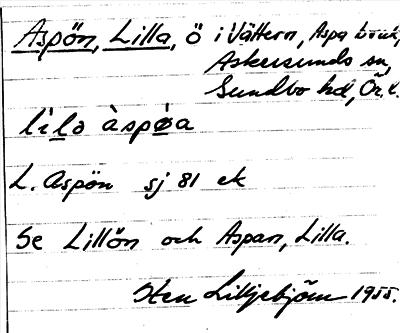 Aspön, Lilla, ö i Vättern, Aspa bruk,
Askersunds sn,
Sundbo hd, Ör. l.
lìla àspøa
L. Aspön sj 81 ek
Se Lillön och Aspan, Lilla.
Sten Lilljebjörn 1955.